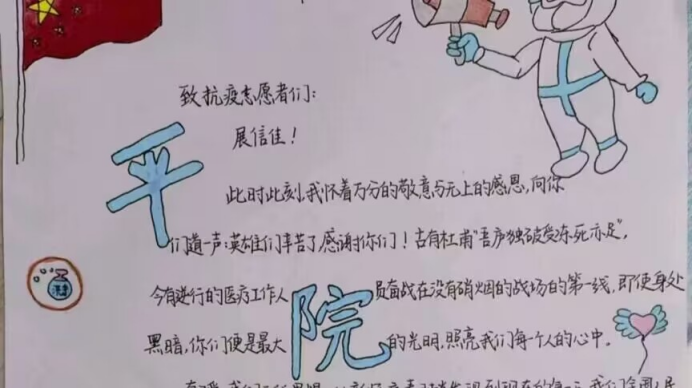 致抗疫志愿者们：
展信佳！
平
此时此刻，我怀着万分的敬意与无上的感恩，向你
们道一声：英雄们辛苦了感谢你们！古有杜甫"吾庐独破受冻死亦足"，
今有逆行的医疗工作人员奋战在没有硝烟的战场的第一线，即使身处
院
黑暗，你们便是最大的光明，照亮我们每个人的心中。